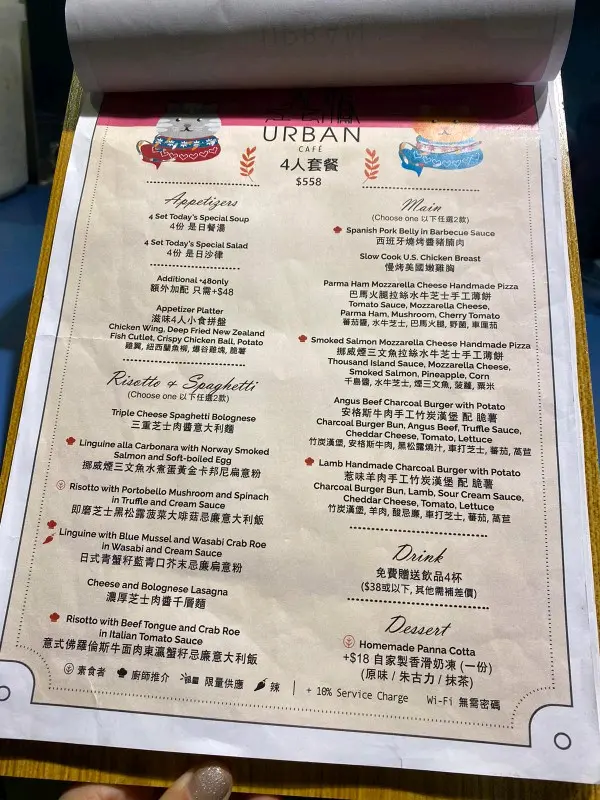 URBAN
CAFÉ
4人套餐
$558
Appetizers
4 Set Today's Special Soup
4份 是日餐湯
4 Set Today's Special Salad
4份 是日沙律
Additional +48only
額外加配 只需+$48
Appetizer Platter
滋味4人小食拼盤
Chicken Wing, Deep Fried New Zealand
Fish Cutlet, Crispy Chicken Ball, Potato
雞翼, 紐西蘭魚柳, 爆谷雞塊, 脆薯
Risotto & Spaghetti
(Choose one 以下任選2款)
Triple Cheese Spaghetti Bolognese
三重芝士肉醬意大利麵
Linguine alla Carbonara with Norway Smoked
Salmon and Soft-boiled Egg
挪威煙三文魚水煮蛋黃金卡邦尼扁意粉
Risotto with Portobello Mushroom and Spinach
in Truffle and Cream Sauce
即磨芝士黑松露菠菜大啡菇忌廉意大利飯
Linguine with Blue Mussel and Wasabi Crab Roe
in Wasabi and Cream Sauce
日式青蟹籽藍青口芥末忌廉扁意粉
Cheese and Bolognese Lasagna
濃厚芝士肉醬千層麵
Risotto with Beef Tongue and Crab Roe
in Italian Tomato Sauce
意式佛羅倫斯牛面肉東瀛蟹籽忌廉意大利飯
Main
(Choose one 以下任選2款)
Spanish Pork Belly in Barbecue Sauce
西班牙燒烤醬豬腩肉
Slow Cook U.S. Chicken Breast
慢烤美國嫩雞胸
Parma Ham Mozzarella Cheese Handmade Pizza
巴馬火腿拉絲水牛芝士手工薄餅
Tomato Sauce, Mozzarella Cheese,
Parma Ham, Mushroom, Cherry Tomato
蕃茄醬, 水牛芝士, 巴馬火腿, 野菌, 車厘茄
Smoked Salmon Mozzarella Cheese Handmade Pizza
挪威煙三文魚拉絲水牛芝士手工薄餅
Thousand Island Sauce, Mozzarella Cheese,
Smoked Salmon, Pineapple, Corn
千島醬, 水牛芝士, 煙三文魚, 菠蘿, 粟米
Angus Beef Charcoal Burger with Potato
安格斯牛肉手工竹炭漢堡 配 脆薯
Charcoal Burger Bun, Angus Beef, Truffle Sauce,
Cheddar Cheese, Tomato, Lettuce
竹炭漢堡, 安格斯牛肉, 黑松露燒汁, 車打芝士, 蕃茄, 萵苣
Lamb Handmade Charcoal Burger with Potato
惹味羊肉手工竹炭漢堡 配 脆薯
Charcoal Burger Bun, Lamb, Sour Cream Sauce,
Cheddar Cheese, Tomato, Lettuce
竹炭漢堡, 羊肉, 酸忌廉, 車打芝士, 蕃茄, 萵苣
Drink
免費贈送飲品4杯
($38或以下, 其他需補差價)
Dessert
Homemade Panna Cotta
+$18 自家製香滑奶凍 (一份)
(原味 / 朱古力 / 抹茶)
素食者 廚師推介 限量供應 辣 | + 10% Service Charge Wi-Fi 無需密碼